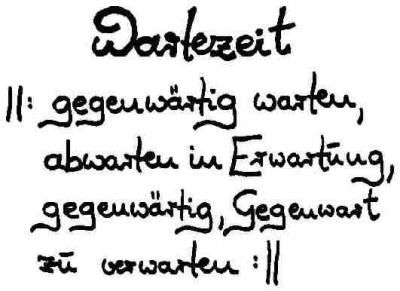 Wartezeit
||: gegenwärtig warten,
abwarten in Erwartung,
gegenwärtig, Gegenwart
zu verwarten :||